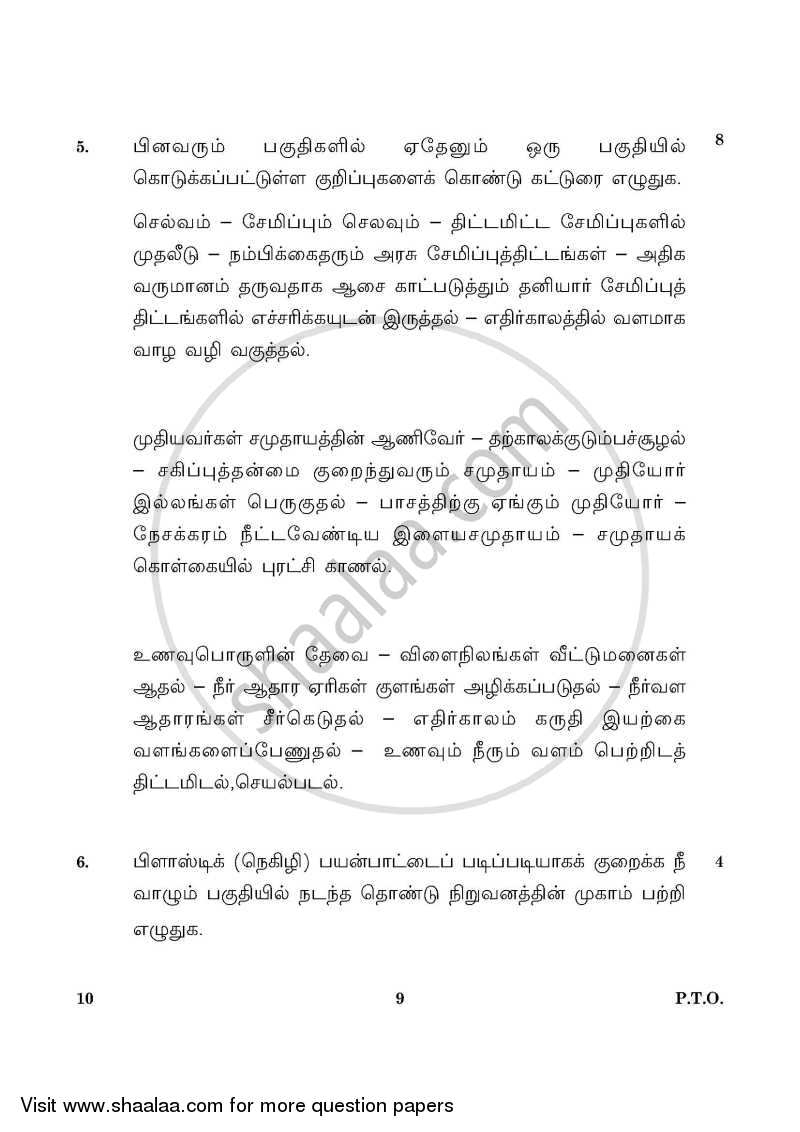 5. பினவரும் பகுதிகளில் ஏதேனும் ஒரு பகுதியில் 8
கொடுக்கப்பட்டுள்ள குறிப்புகளைக் கொண்டு கட்டுரை எழுதுக.
செல்வம் – சேமிப்பும் செலவும் – திட்டமிட்ட சேமிப்புகளில்
முதலீடு – நம்பிக்கைதரும் அரசு சேமிப்புத்திட்டங்கள் – அதிக
வருமானம் தருவதாக ஆசை காட்படுத்தும் தனியார் சேமிப்புத்
திட்டங்களில் எச்சரிக்கயுடன் இருத்தல் – எதிர்காலத்தில் வளமாக
வாழ வழி வகுத்தல்.
முதியவர்கள் சமுதாயத்தின் ஆணிவேர் – தற்காலக்குடும்பச்சூழல்
– சகிப்புத்தன்மை குறைந்துவரும் சமுதாயம் – முதியோர்
இல்லங்கள் பெருகுதல் – பாசத்திற்கு ஏங்கும் முதியோர் –
நேசக்கரம் நீட்டவேண்டிய இளையசமுதாயம் – சமுதாயக்
கொள்கையில் புரட்சி காணல்.
உணவுபொருளின் தேவை – விளைநிலங்கள் வீட்டுமனைகள்
ஆதல் – நீர் ஆதார ஏரிகள் குளங்கள் அழிக்கப்படுதல் – நீர்வள
ஆதாரங்கள் சீர்கெடுதல் – எதிர்காலம் கருதி இயற்கை
வளங்களைப்பேணுதல் – உணவும் நீரும் வளம் பெற்றிடத்
திட்டமிடல்,செயல்படல்.
6. பிளாஸ்டிக் (நெகிழி) பயன்பாட்டைப் படிப்படியாகக் குறைக்க நீ 4
வாழும் பகுதியில் நடந்த தொண்டு நிறுவனத்தின் முகாம் பற்றி
எழுதுக.
10 9 P.T.O.
shaalaa.com
Visit www.shaalaa.com for more question papers